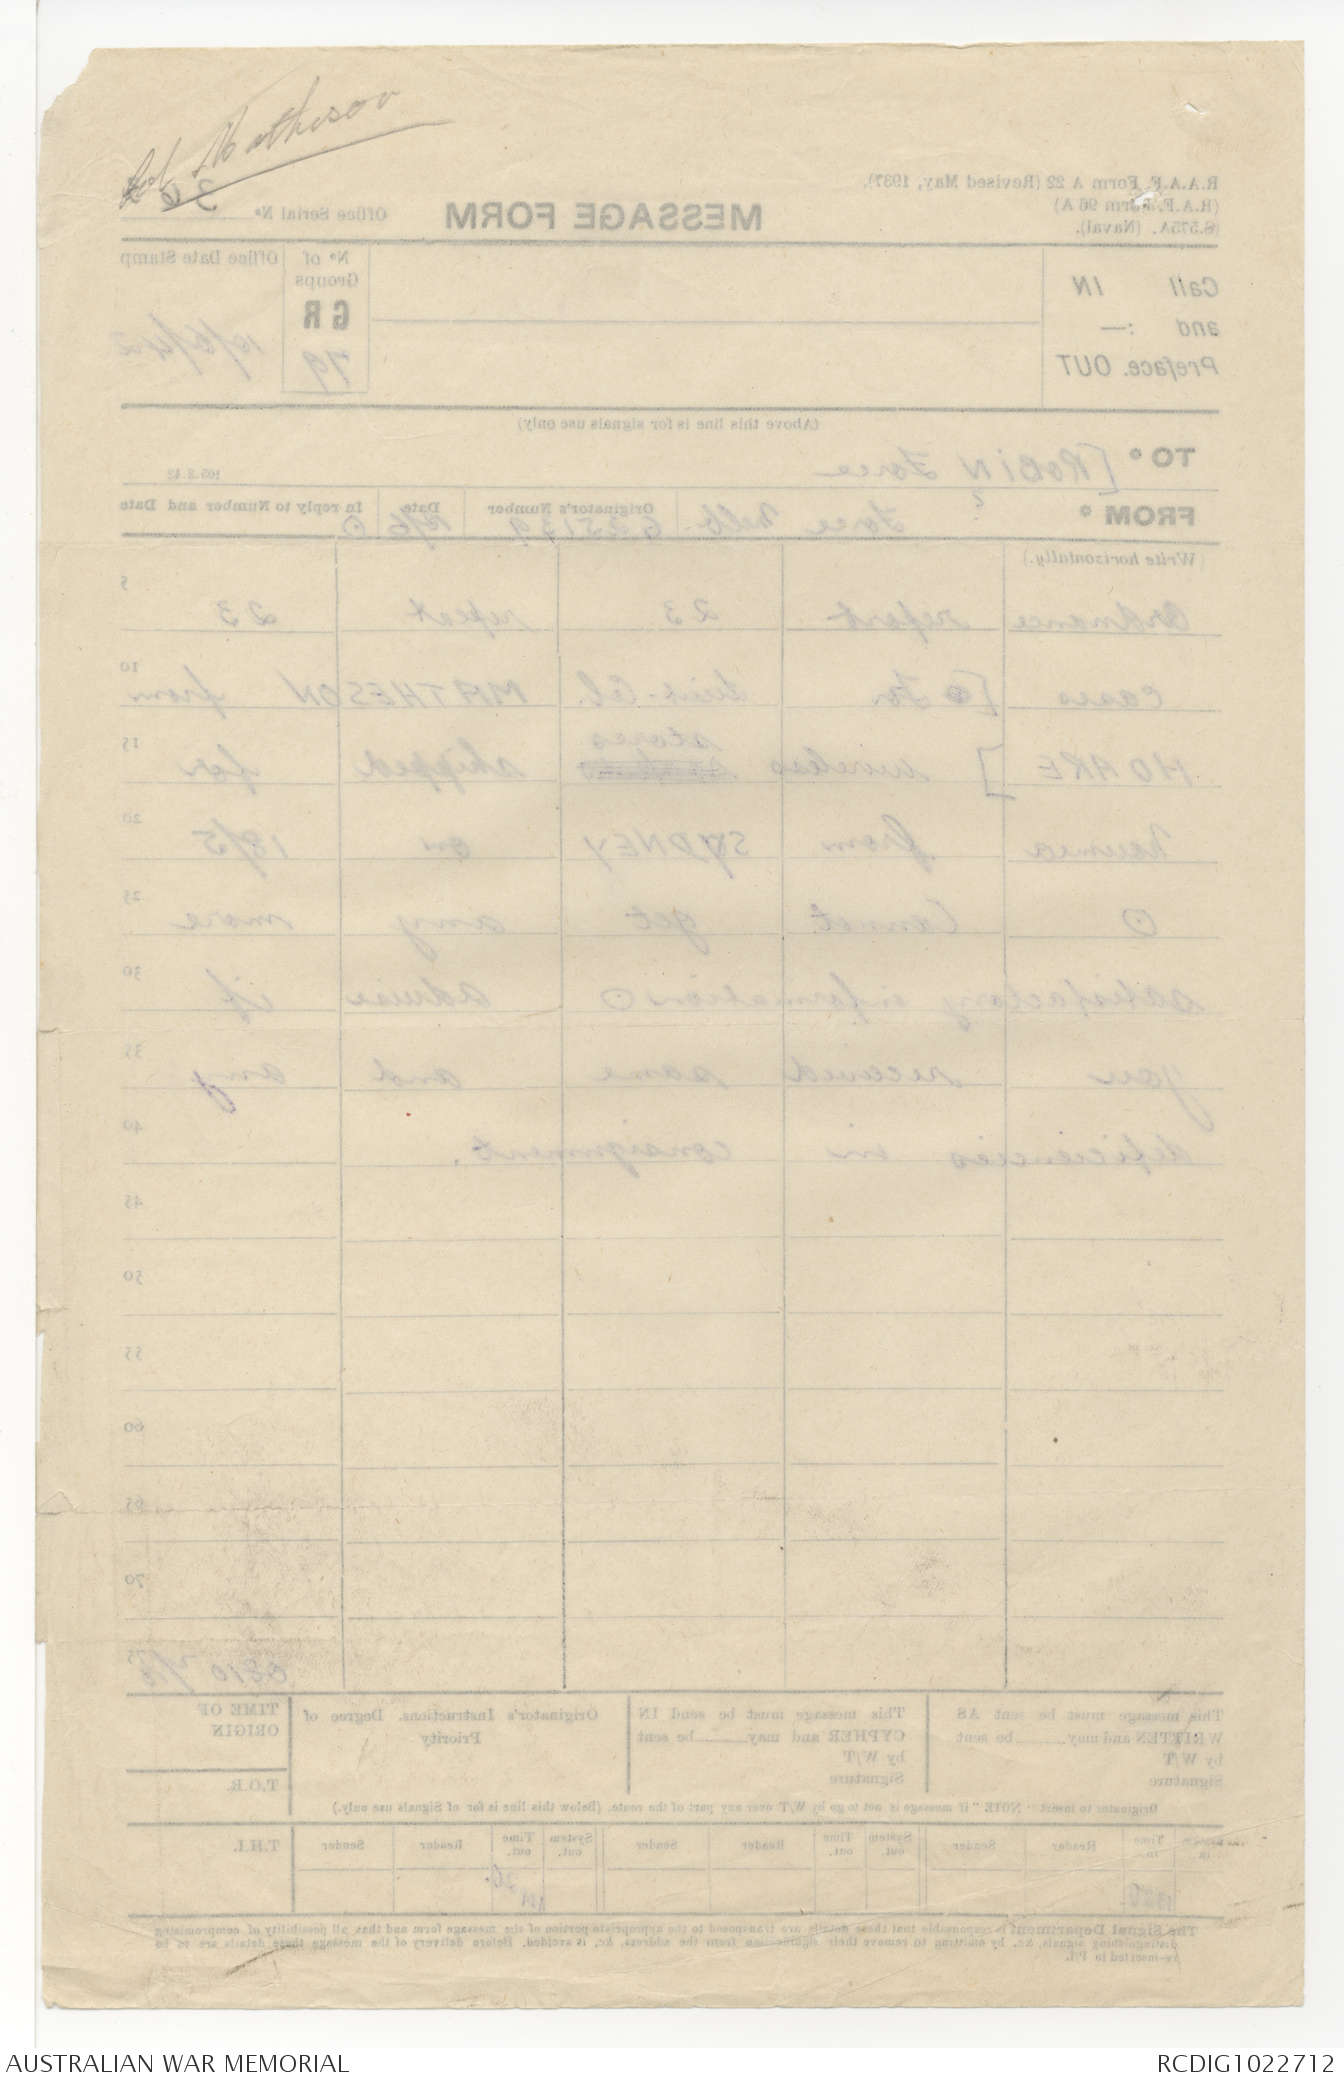 Col Matheson
MESSAGE FORM
Office Serial No. 36
R.A.A.F. Form A 22 (Revised May, 1937).
(R.A.F. Form 96 A)
(S.575A. (Naval).
Call IN
and :—
Preface. OUT
No of Groups
GR
79
Office Date Stamp
(Above this line is for signals use only)
TO [ROBIN Force
FROM Force Melb.
Originator's Number
Date
In reply to Number and Date
(Write horizontally.)
Ordnance report 23 repeat 23 5
cases [ For Lieut-Col. MATHESON from 10
HOARE ] wireless stores shipped for 15
Noumea from SYDNEY on 18/5 20
Cannot get any more 25
satisfactory information advise if 30
you received same and any 35
deficiencies in consignment. 40
45
50
55
60
65
70
75
This message must be sent AS WRITTEN and may ...... be sent by W/T
Signature
This message must be send IN CYPHER and may ...... be sent by W/T
Signature
Originator's Instructions. Degree of Priority
TIME OF ORIGIN
T.O.R.
Originator to insert "NOTE" if message is not to go by W/T over any part of the route. (Below this line is for of Signals use only.)
System in
Time in
Reader
Sender
System out.
Time out.
Reader
Sender
System out.
Time out.
Reader
Sender
T.H.I.
The Signal Department is responsible that these details are transposed to the appropriate portion of the message form and that all possibility of compromising
distinguishing signals, &c. by omitting to remove their signification from the address, &c. is avoided. Before delivery of the message these details are to be
re-inserted in P/L.
AUSTRALIAN WAR MEMORIAL
RCDIG1022712